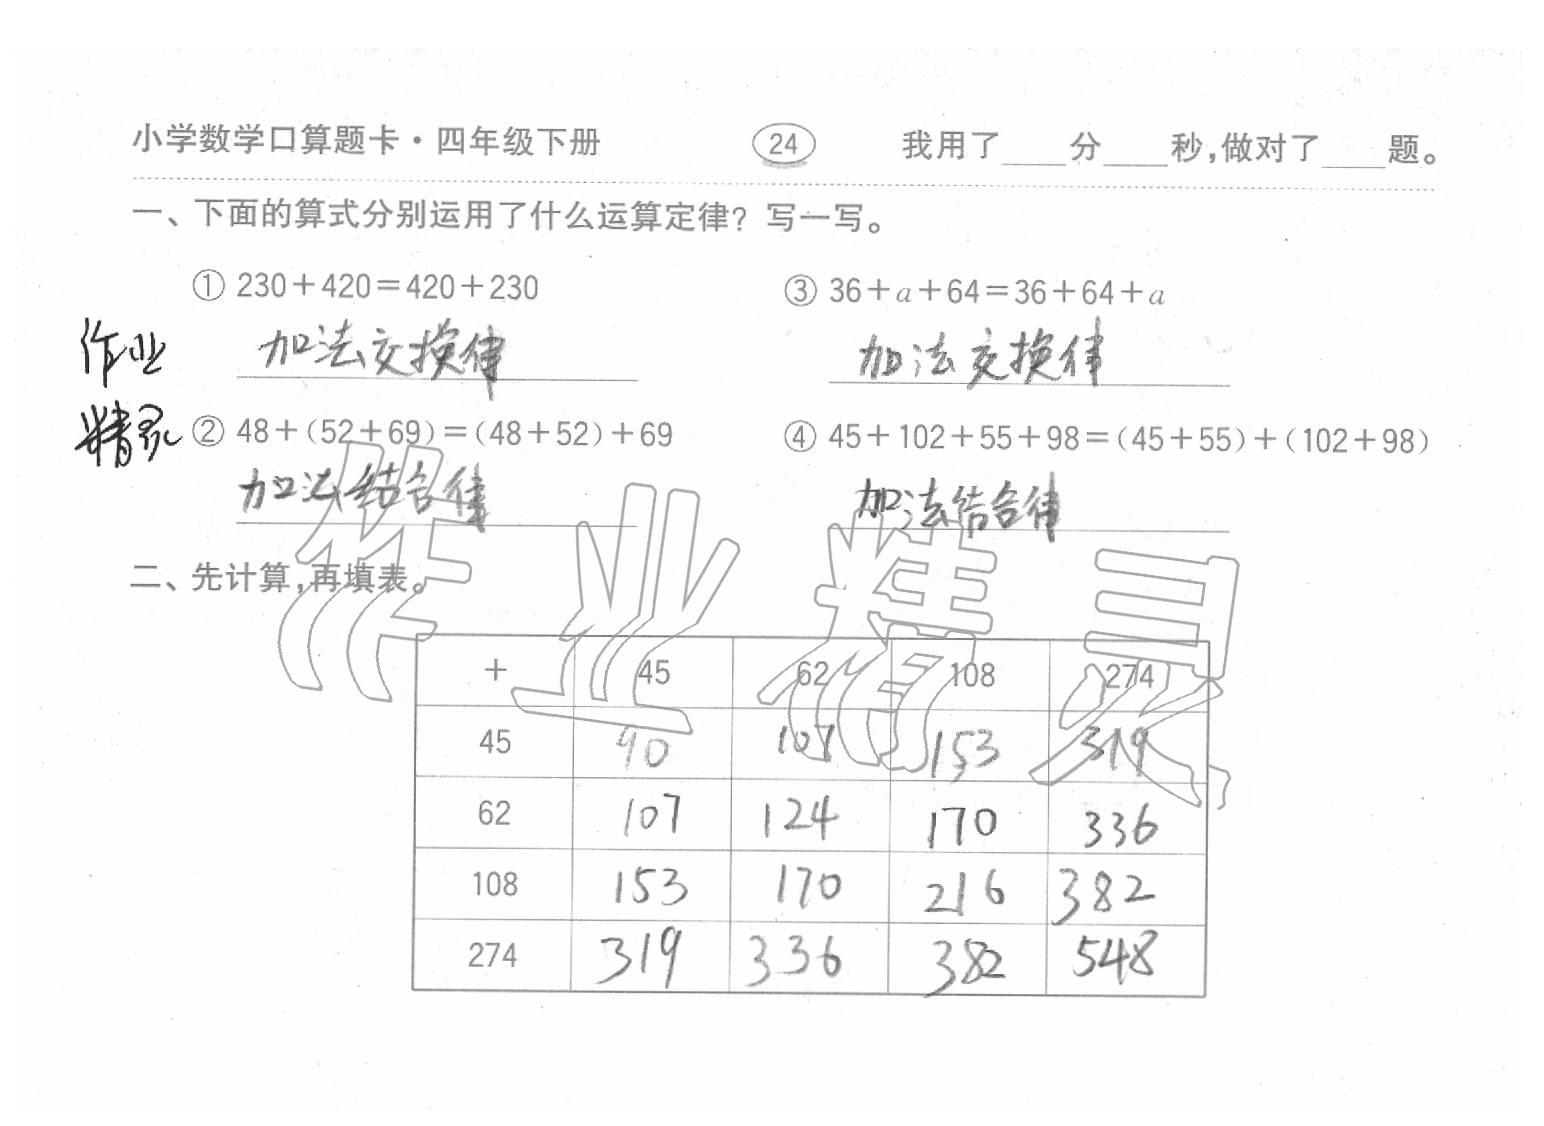 小学数学口算题卡·四年级下册 24 我用了____分____秒,做对了____题。
一、下面的算式分别运用了什么运算定律? 写一写。
① 230+420=420+230 ③ 36+a+64=36+64+a
作业 加法交换律 加法交换律
精灵 ② 48+(52+69)=(48+52)+69 ④ 45+102+55+98=(45+55)+(102+98)
加法结合律 加法结合律
作业精灵
二、先计算,再填表。
+ 45 62 108 274
45 90 107 153 319
62 107 124 170 336
108 153 170 216 382
274 319 336 382 548